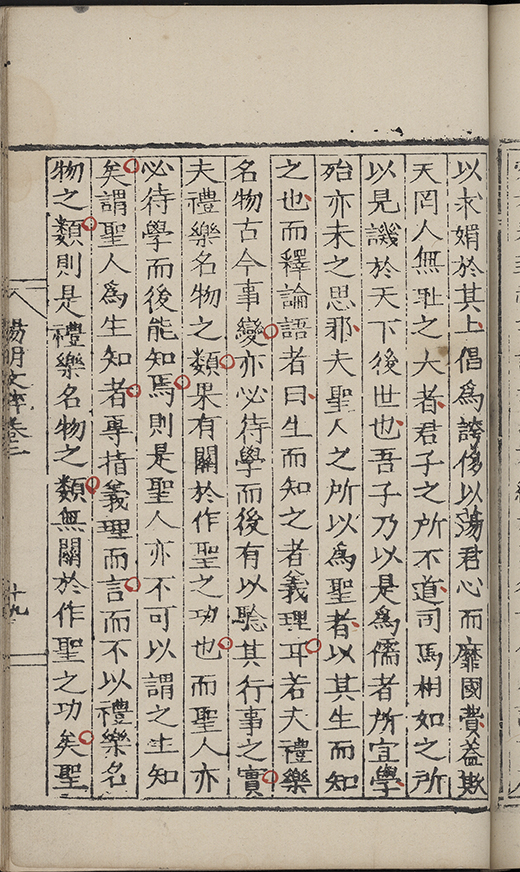 以求媚於其上倡爲誇侈以蕩君心而靡國費葢欺
天罔人無恥之大者君子之所不道司馬相如之所
以見譏於天下後世也吾子乃以是爲儒者所宜學
殆亦未之思邪夫聖人之所以爲聖者以其生而知
之也而釋論語者曰生而知之者義理耳若夫禮樂
名物古今事變亦必待學而後有以驗其行事之實
夫禮樂名物之類果有關於作聖之功也而聖人亦
必待學而後能知焉則是聖人亦不可以謂之生知
矣謂聖人爲生知者專指義理而言而不以禮樂名
物之類則是禮樂名物之類無關於作聖之功矣聖
陽明文粹卷二
十九